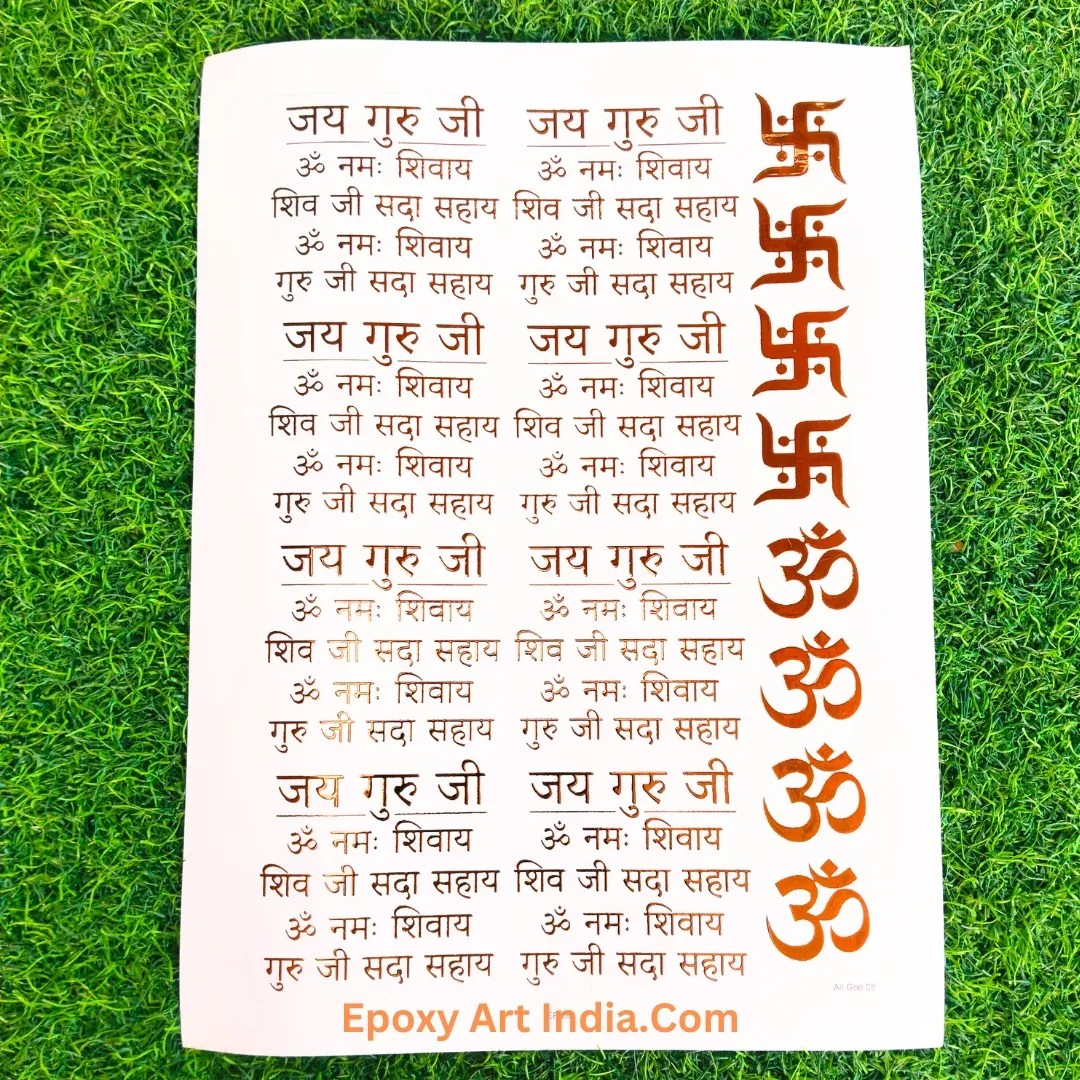 जय गुरु जी जय गुरु जी
ॐ नमः शिवाय ॐ नमः शिवाय
शिव जी सदा सहाय शिव जी सदा सहाय
ॐ नमः शिवाय ॐ नमः शिवाय
गुरु जी सदा सहाय गुरु जी सदा सहाय
जय गुरु जी जय गुरु जी
ॐ नमः शिवाय ॐ नमः शिवाय
शिव जी सदा सहाय शिव जी सदा सहाय
ॐ नमः शिवाय ॐ नमः शिवाय
गुरु जी सदा सहाय गुरु जी सदा सहाय
जय गुरु जी जय गुरु जी
ॐ नमः शिवाय ॐ नमः शिवाय
शिव जी सदा सहाय शिव जी सदा सहाय
ॐ नमः शिवाय ॐ नमः शिवाय
गुरु जी सदा सहाय गुरु जी सदा सहाय
जय गुरु जी जय गुरु जी
ॐ नमः शिवाय ॐ नमः शिवाय
शिव जी सदा सहाय शिव जी सदा सहाय
ॐ नमः शिवाय ॐ नमः शिवाय
गुरु जी सदा सहाय गुरु जी सदा सहाय
卐
卐
卐
卐
ॐ
ॐ
ॐ
ॐ
All God 08
Epoxy Art India.Com